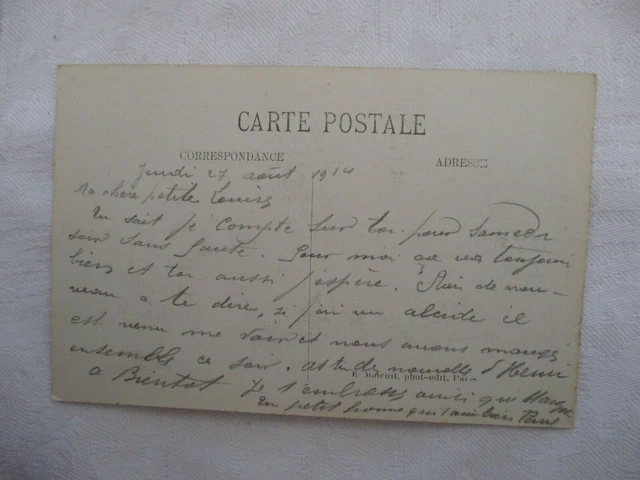 CARTE POSTALE
CORRESPONDANCE
ADRESSE
Jeudi 27 août 1914
Ma chère petite Louise
Tu sait je compte sur toi pour samedi
soir sans faute. Pour moi ça va toujours
bien et toi aussi j'espère. Rien de nou-
veau a te dire, si j'ai vu alcide il
est venu me voir et nous avons mangé
ensemble ce soir. as tu de nouvelle d'Henri
E. Mareuil, phot-édit. Paris
a Bientot Je t'embrasse ainsi que
Ton petit homme qui t'aime bien